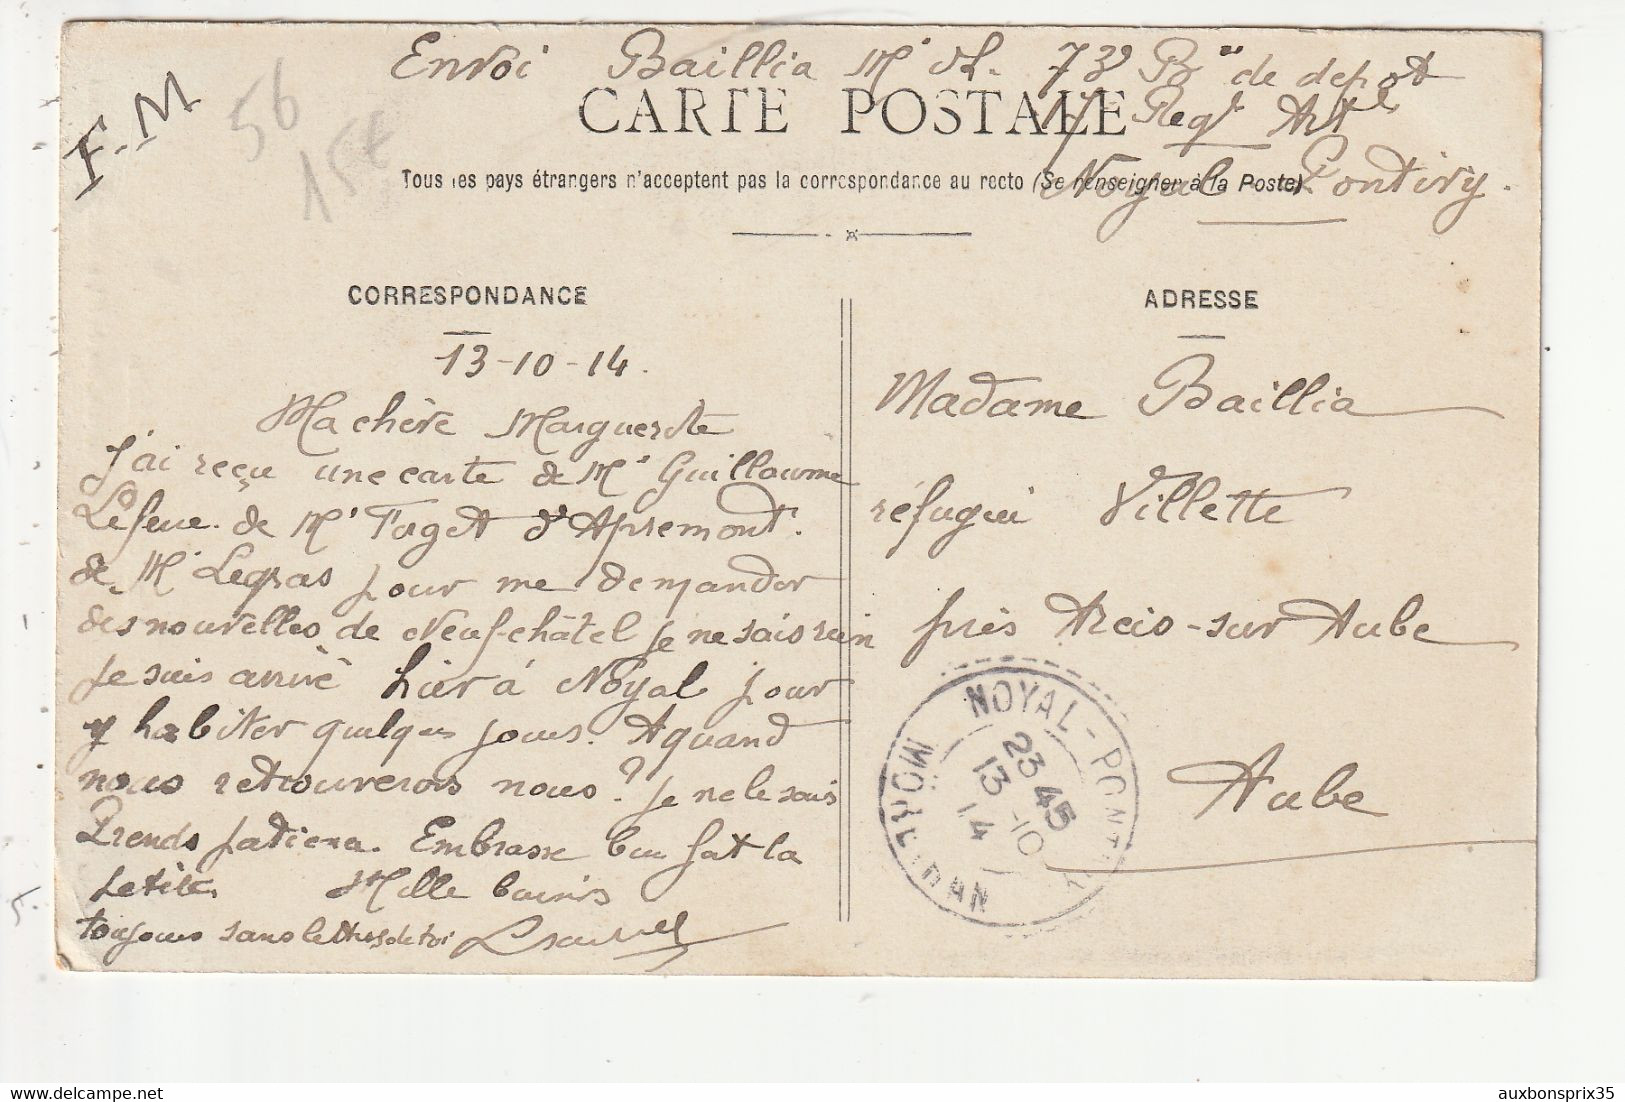 Envoi Baillia Mis ch. 73e Bie de depot
F.M
56
15€
CARTE POSTALE
17 Regt Art
Tous les pays étrangers n'acceptent pas la correspondance au recto (Se renseigner à la Poste)
Noyal Pontivy.
CORRESPONDANCE
13-10-14.
Ma chère Marguerite
J'ai reçu une carte de Mr Guillaume
Lefeue. de Mr Faget d'Apremont.
de Mr Legras pour me demander
des nouvelles de Neufchâtel je ne sais rien
Je suis arrivé hier à Noyal pour
y habiter quelques jours. A quand
nous retrouverons nous? je ne le sais
Prends patience. Embrasse bien fat la
petite. Mille baisers
toujours sans lettres de toi
ADRESSE
Madame Baillia
réfugiée Villette
près Arcis-sur Aube
Aube
NOYAL-PONTIVY
23 45
13 -10
14
MORBIHAN
auxbonsprix35